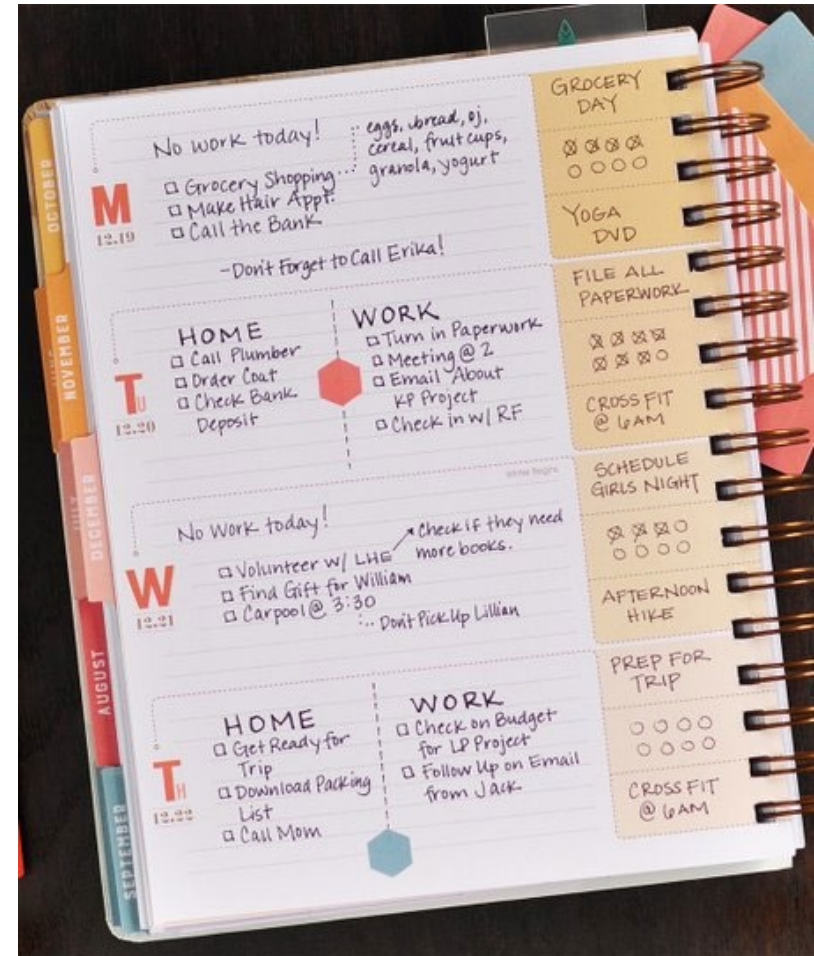 OCTOBER
NOVEMBER
DECEMBER
AUGUST
SEPTEMBER
M
12.19
No work today!
□ Grocery Shopping
eggs, bread, oj,
cereal, fruit cups,
granola, yogurt
□ Make Hair Appt.
□ Call the Bank
-Don't Forget to Call Erika!
GROCERY
DAY
YOGA
DVD
TU
12.20
HOME
□ Call Plumber
□ Order Coat
□ Check Bank
Deposit
WORK
□ Turn in Paperwork
□ Meeting @ 2
□ Email About
KP Project
□ Check in w/ RF
FILE ALL
PAPERWORK
CROSS FIT
@ 6AM
W
12.21
Winter Begins
No Work today!
□ Volunteer w/ LHE
Check if they need
more books.
□ Find Gift for William
□ Carpool @ 3:30
Don't Pick Up Lillian
SCHEDULE
GIRLS NIGHT
AFTERNOON
HIKE
TH
12.22
HOME
□ Get Ready for
Trip
□ Download Packing
List
□ Call Mom
WORK
□ Check on Budget
for LP Project
□ Follow Up on Email
from Jack
PREP FOR
TRIP
CROSS FIT
@ 6AM